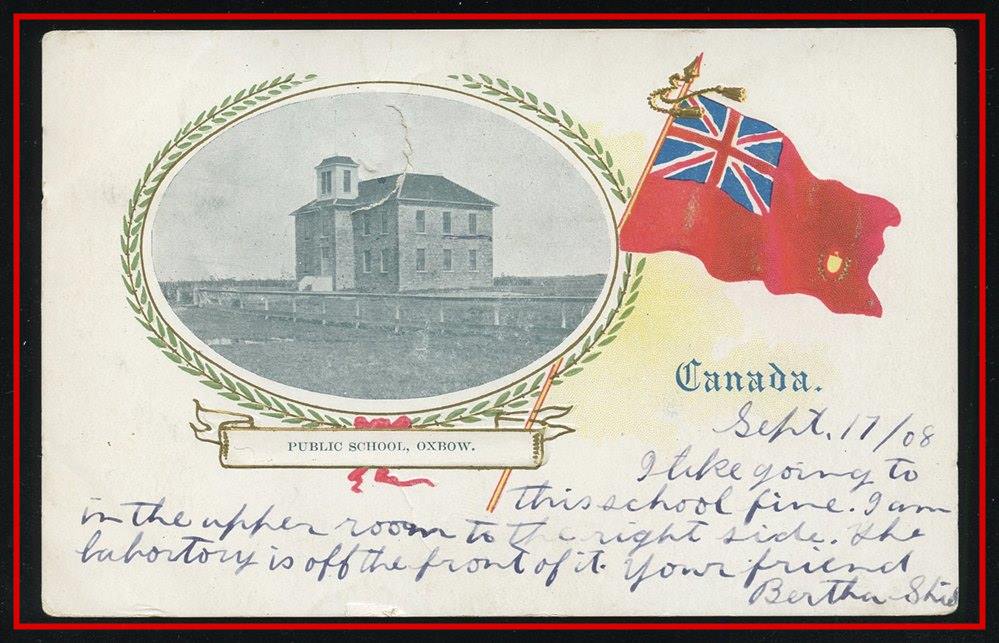 PUBLIC SCHOOL, OXBOW.
Canada.
Sept. 17/08
I like going to
this school fine. I am
in the upper room to the right side. The
labortory is off the front of it. Your friend
Bertha